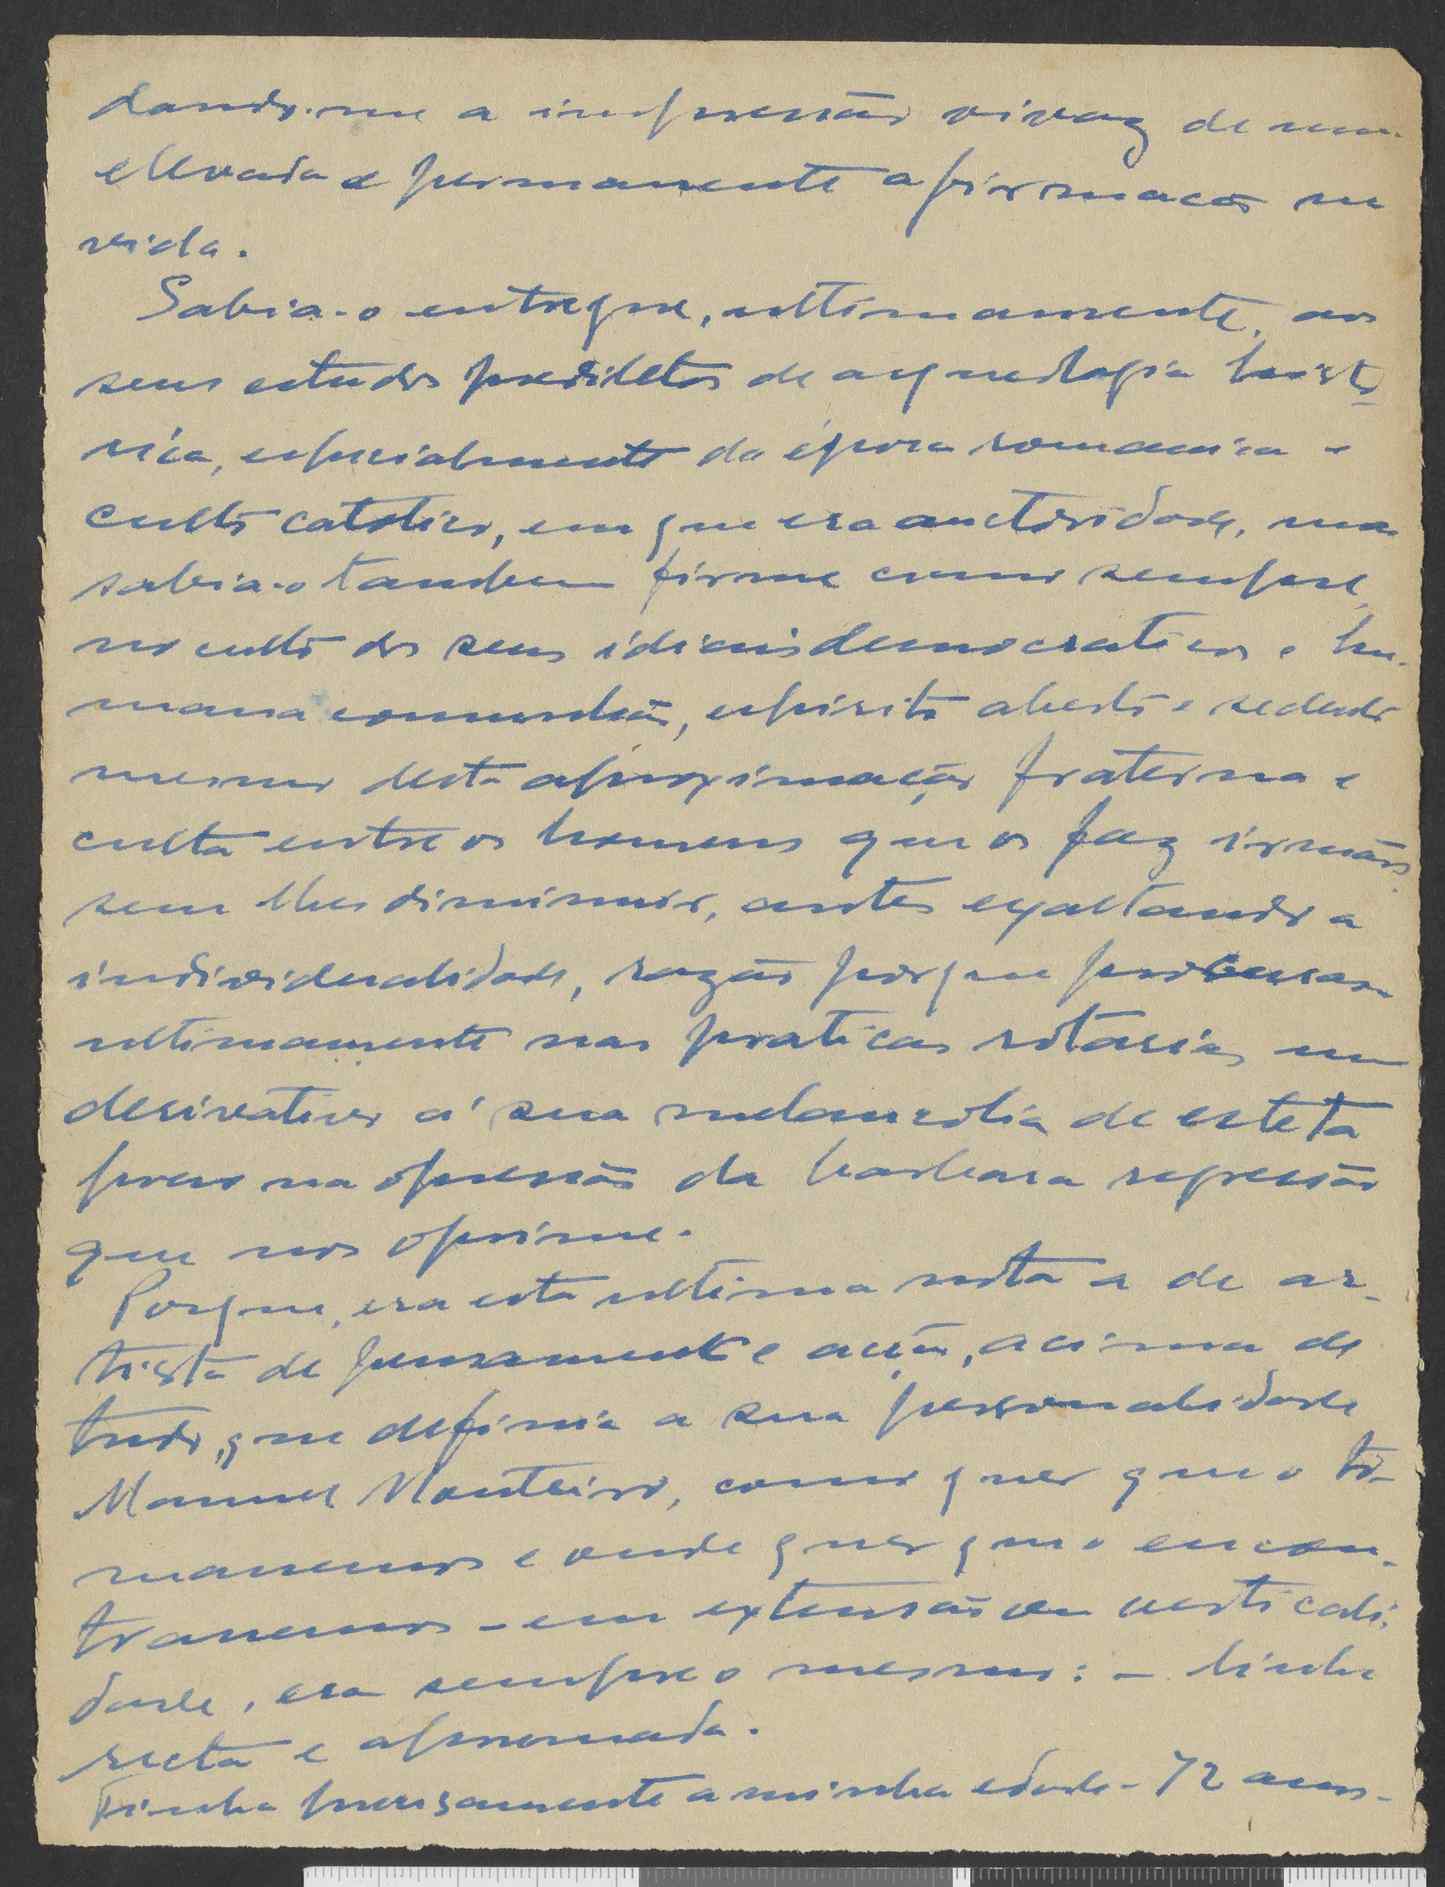 dando-me a impressão vivaz de uma
ellevada e permanente afirmacão na
vida.
Sabia-o entregue, ultimamente, aos
seus estudos predilétos de arqueologia histo
rica, especialmente da época romanica e
culto catolico, em que era auctoridade, mas
sabia-o tambem firme como sempre
no culto dos seus ideiais democraticos e hu-
mana comunhão, espirito aberto e
mesmo desta aproximação fraterna e
culta entre os homens que os faz irmãos,
sem lhes diminuir, antes exaltando a
individualidade, razão porque procurara
ultimamente nas praticas rotarias um
derivativo á sua melancolia de esteta
preso na opressão da barbara repressão
que nos oprime.
Porque, era esta ultima nota a de ar-
tista de pensamento e acção, acima de
tudo, que definia a sua personalidade
Manuel Monteiro, como quer que o to-
massemos e onde quer que o encon-
trassemos - em extensão ou verticali-
dade, era sempre o mesmo: - linha
recta e aprumada.
Tinha precisamente a minha edade - 72 anos -